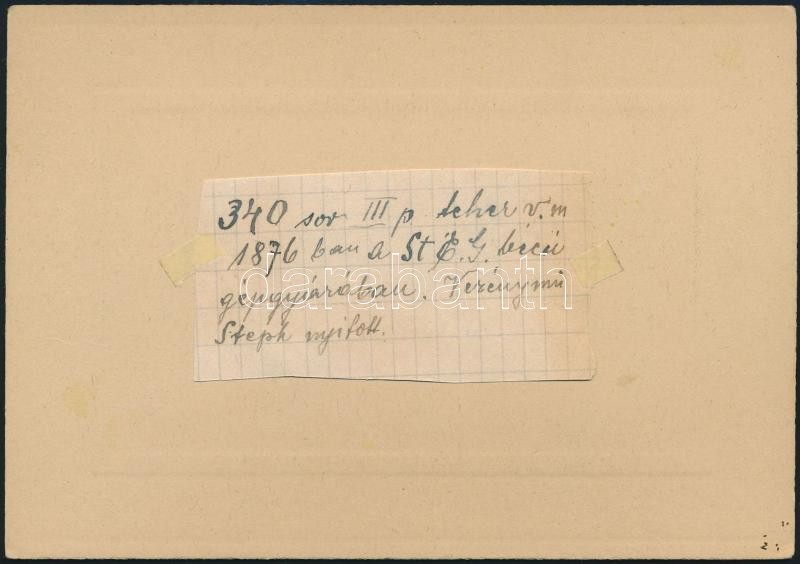 340 sor III p teher v.m
1876 ban a St É.G. bécsi
gépgyárában. Vezénymű
Steph nyitott.
darabanth